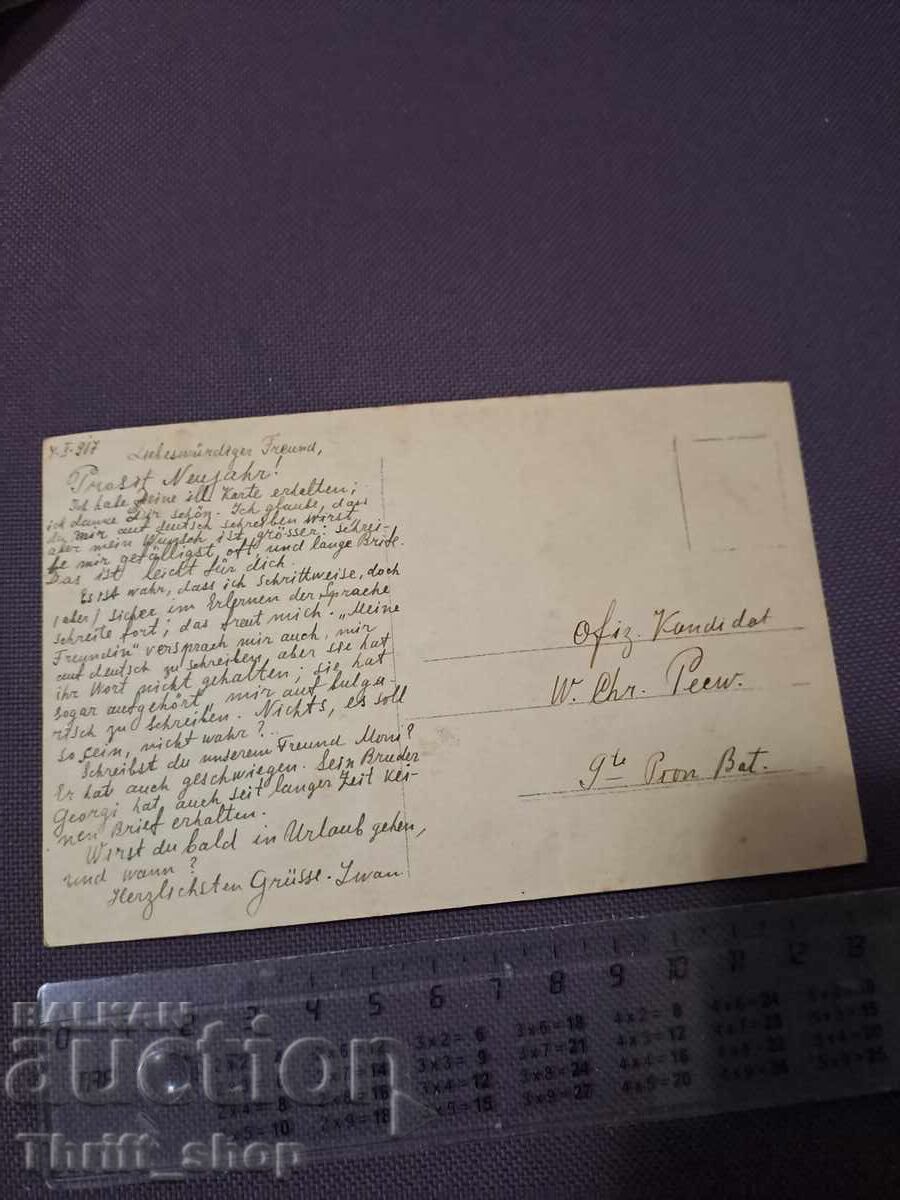 4-I-917 Liebeswürdiger Freund,
Prosit Neujahr!
Ich habe deine ill. Karte erhalten;
ich danke dir schön. Ich glaube, dass
du mir auf deutsch schreiben wirst,
aber mein Wunsch ist grösser: schrei-
be mir gefälligst oft und lange Briefe.
Das ist leicht für dich.
Es ist wahr, dass ich schrittweise, doch
(aber) sicher im Erlernen der Sprache
schreite fort; das freut mich. "Meine
Freundin" versprach mir auch, mir
auf deutsch zu schreiben, aber sie hat
ihr Wort nicht gehalten; sie hat
sogar aufgehört, mir auf bulga-
risch zu schreiben. Nichts, es soll
so sein, nicht wahr?...
Schreibst du unserem Freund Moni?
Er hat auch geschwiegen. Sein Bruder
Georgi hat auch seit langer Zeit kei-
nen Brief erhalten.
Wirst du bald in Urlaub gehen,
und wann?
Herzlichsten Grüsse - Iwan
Ofiz. Kandidat
W. Chr. Peew.
9te Pion Bat.
0 2 3 4 5 6 7 8 9 10 11 12 13
BALKAN
auction
Thrift_shop
3x2= 6
3x3= 9
3x4= 12
3x6= 18
3x7= 21
3x8= 24
3x9= 27
4x2= 8
4x3= 12
4x4= 16
4x5= 20
4x6= 24
2x4= 8
2x9= 18